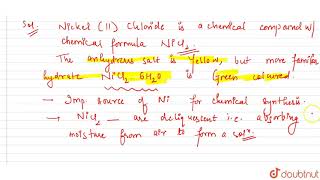 Sol.
Nickel (II) Chloride is a chemical compound w/
chemical formula NiCl2.
The anhydrous salt is Yellow, but more familiar
hydrate NiCl2.6H2O is Green coloured
→ Imp source of Ni for chemical synthesis.
→ NiCl2 — are deliquescent i.e. absorbing
moisture from air to form a solⁿ.
doubtnut